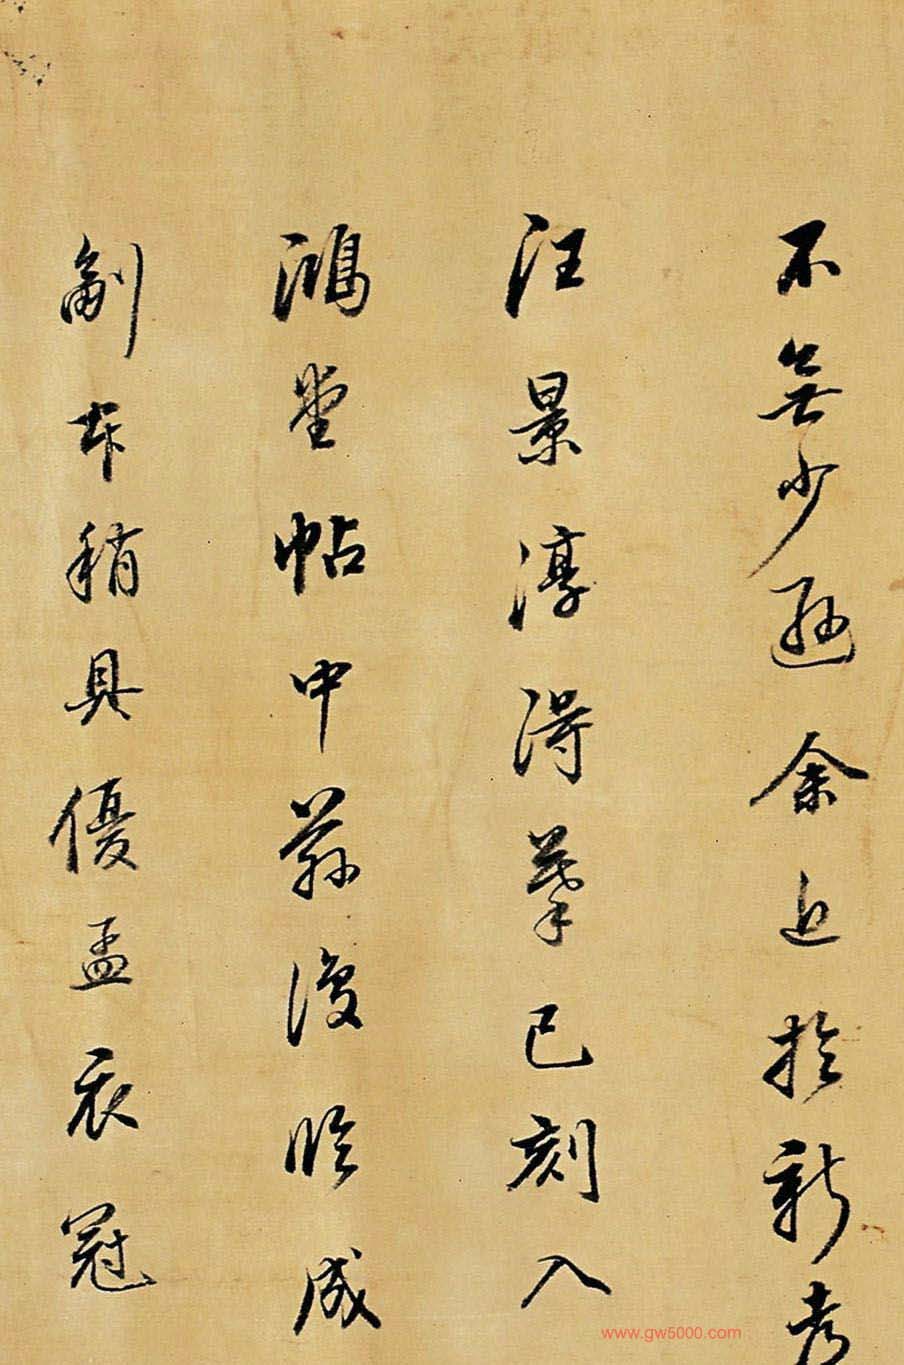 不無少遜余近於新考
汪景淳得摹已刻入
鴻堂帖中茲復臨成
副本稍具優孟衣冠
www.gw5000.com